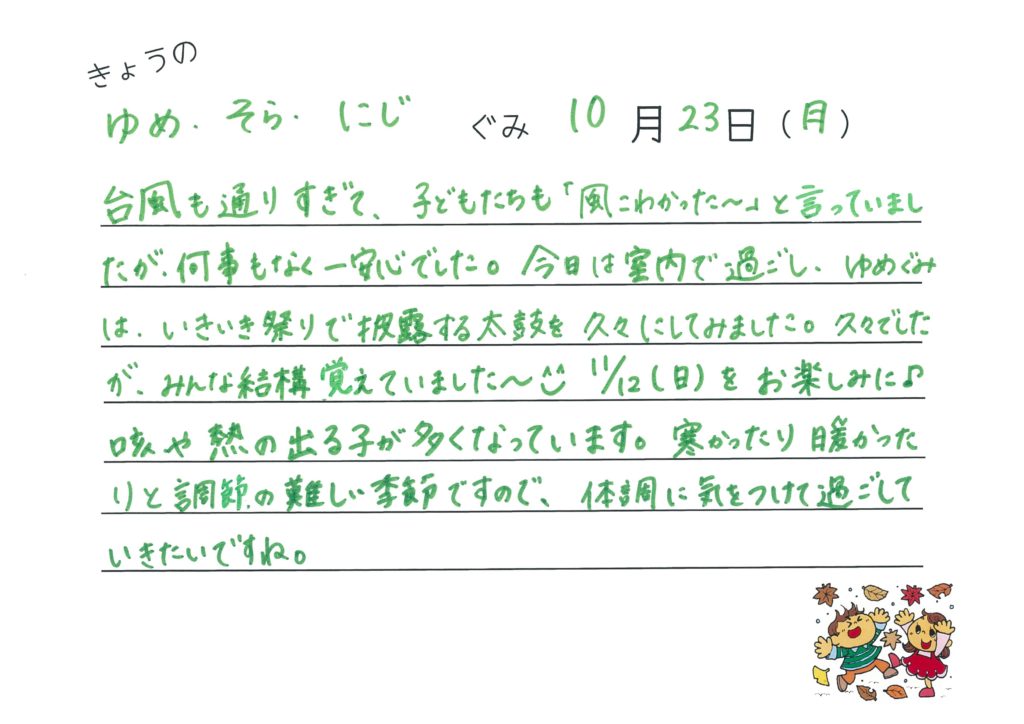 きょうの
ゆめ・そら・にじ ぐみ 10月23日(月)
台風も通りすぎて、子どもたちも「風こわかった〜」と言っていまし
たが、何事もなく一安心でした。今日は室内で過ごし、ゆめぐみ
は、いきいき祭りで披露する太鼓を久々にしてみました。久々でした
が、みんな結構覚えていました〜^^ 11/12(日)をお楽しみに♪
咳や熱の出る子が多くなっています。寒かったり暖かった
りと調節の難しい季節ですので、体調に気をつけて過ごして
いきたいですね。